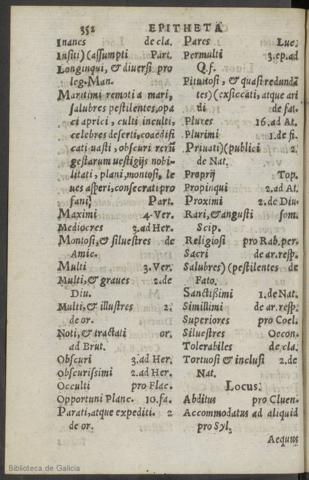 352 EPITHETA
Inanes de cla.
Insiti) (assumpti Part.
Longinqui, & diuersi pro
leg. Man.
Maritimi remoti a mari,
salubres pestilentes, opa
ci aprici, culti inculti,
celebres deserti, coaedifi
cati uasti, obscuri rerū
gestarum uestigijs nobi-
litati, plani, montosi, le
ues asperi, consecrati pro
fani} Part.
Maximi 4. Ver.
Mediocres 3. ad Her.
Montosi, & siluestres de
Amic.
Multi 3. Ver.
Multi, & graues 2. de
Diu.
Multi, & illustres 2.
de or.
Noti, & tractati or.
ad Brut.
Obscuri 3. ad Her.
Obscurissimi 2. ad Her.
Occulti pro Flac.
Opportuni Planc. 10. fa.
Parati, atque expediti. 2
de or.
Pares Luc.
Permulti 3. ep. ad
Q. f.
Pituitosi, & quasi redundā
tes) (exsiccati, atque ari
di de fat.
Plures 16. ad At.
Plurimi 1. de fi.
Priuati) (publici 2.
de Nat.
Proprij Top.
Propinqui 2. ad At.
Proximi 2. de Diu.
Rari, & angusti som.
Scip.
Religiosi pro Rab. per.
Sacri de ar. resp.
Salubres) (pestilentes de
Fato.
Sanctissimi 1. de Nat.
Simillimi de ar. resp.
Superiores pro Coel.
Siluestres Oecon.
Tolerabiles de cla.
Tortuosi & inclusi 2. de
Nat.
Locus.
Abditus pro Cluen.
Accommodatus ad aliquid
pro Syl.
Aequus
Biblioteca de Galicia